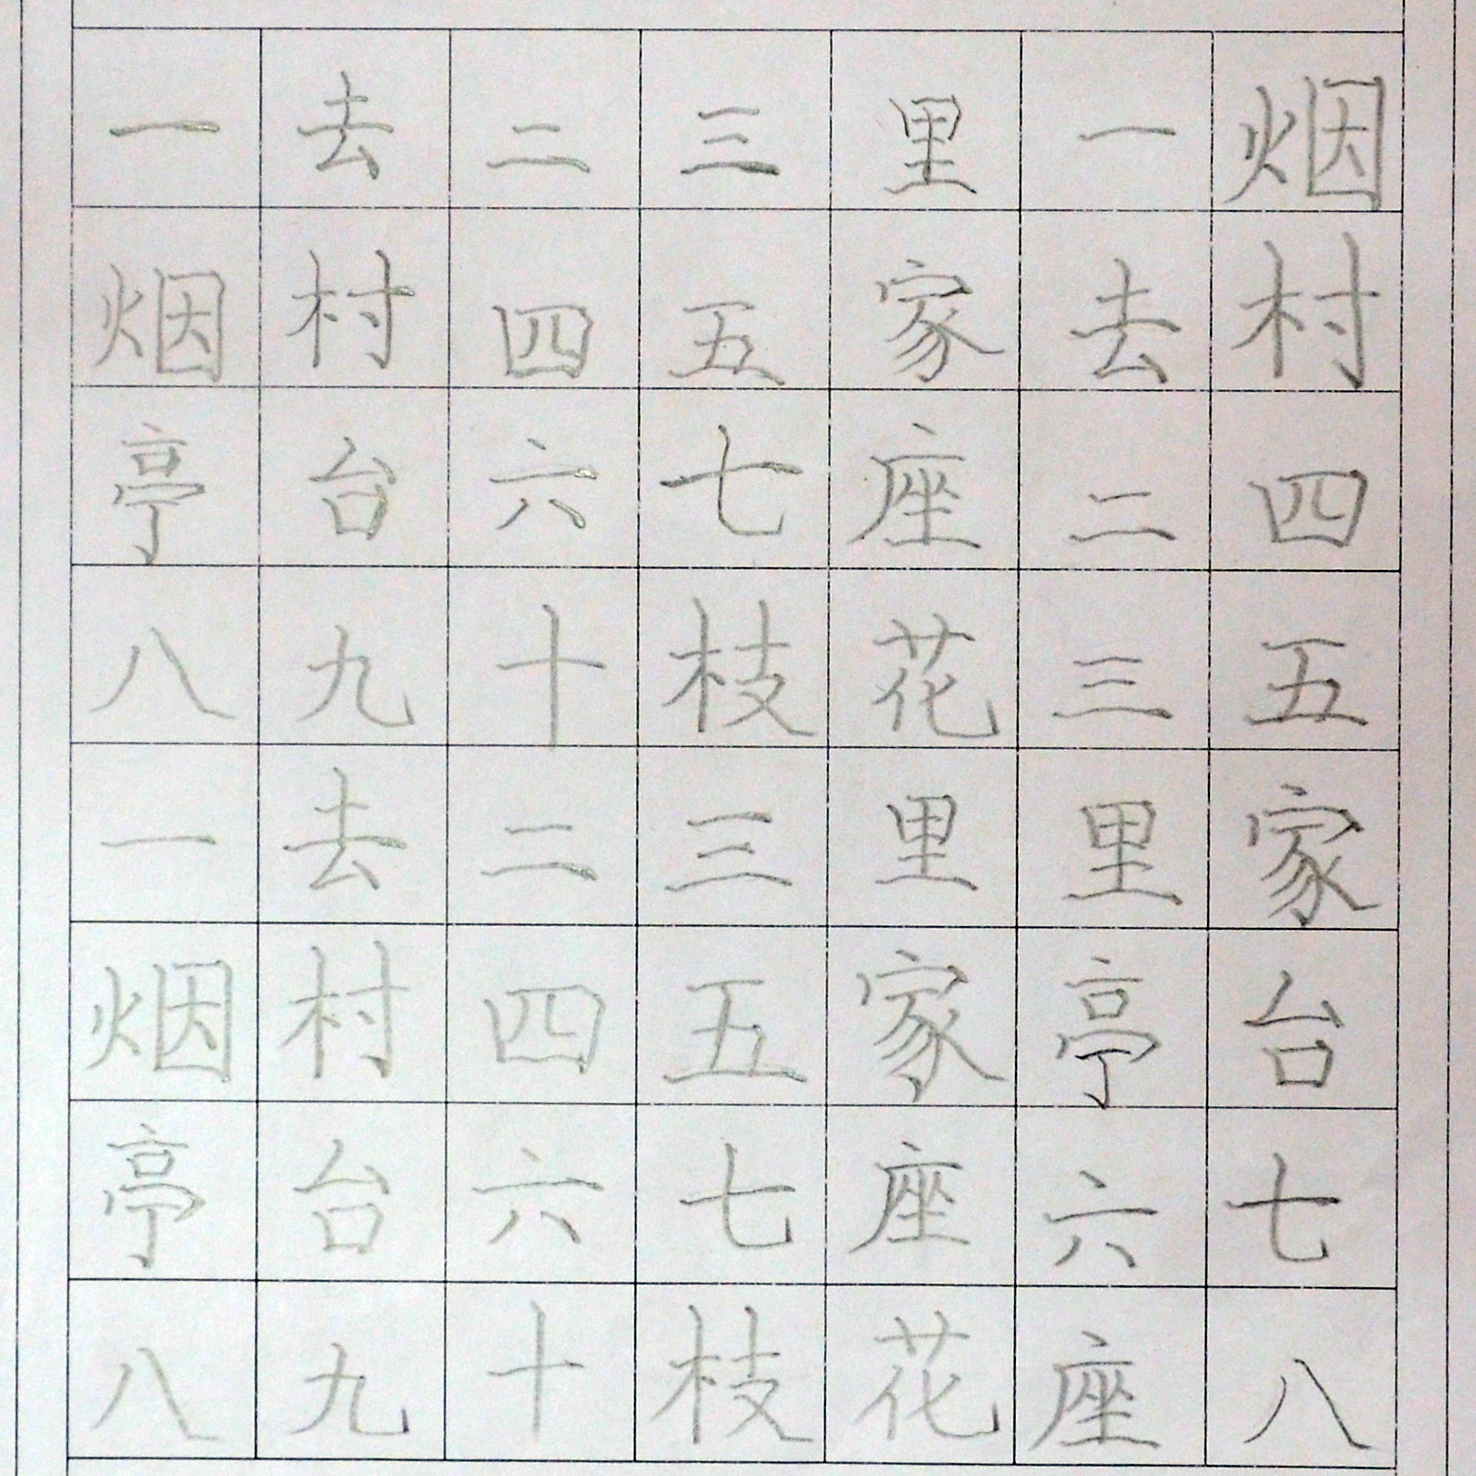 一去二三里一烟
烟村四五家去村
亭台六七座二四
八九十枝花三五
一去二三里里家
烟村四五家亭台
亭台六七座六七
八九十枝花座八